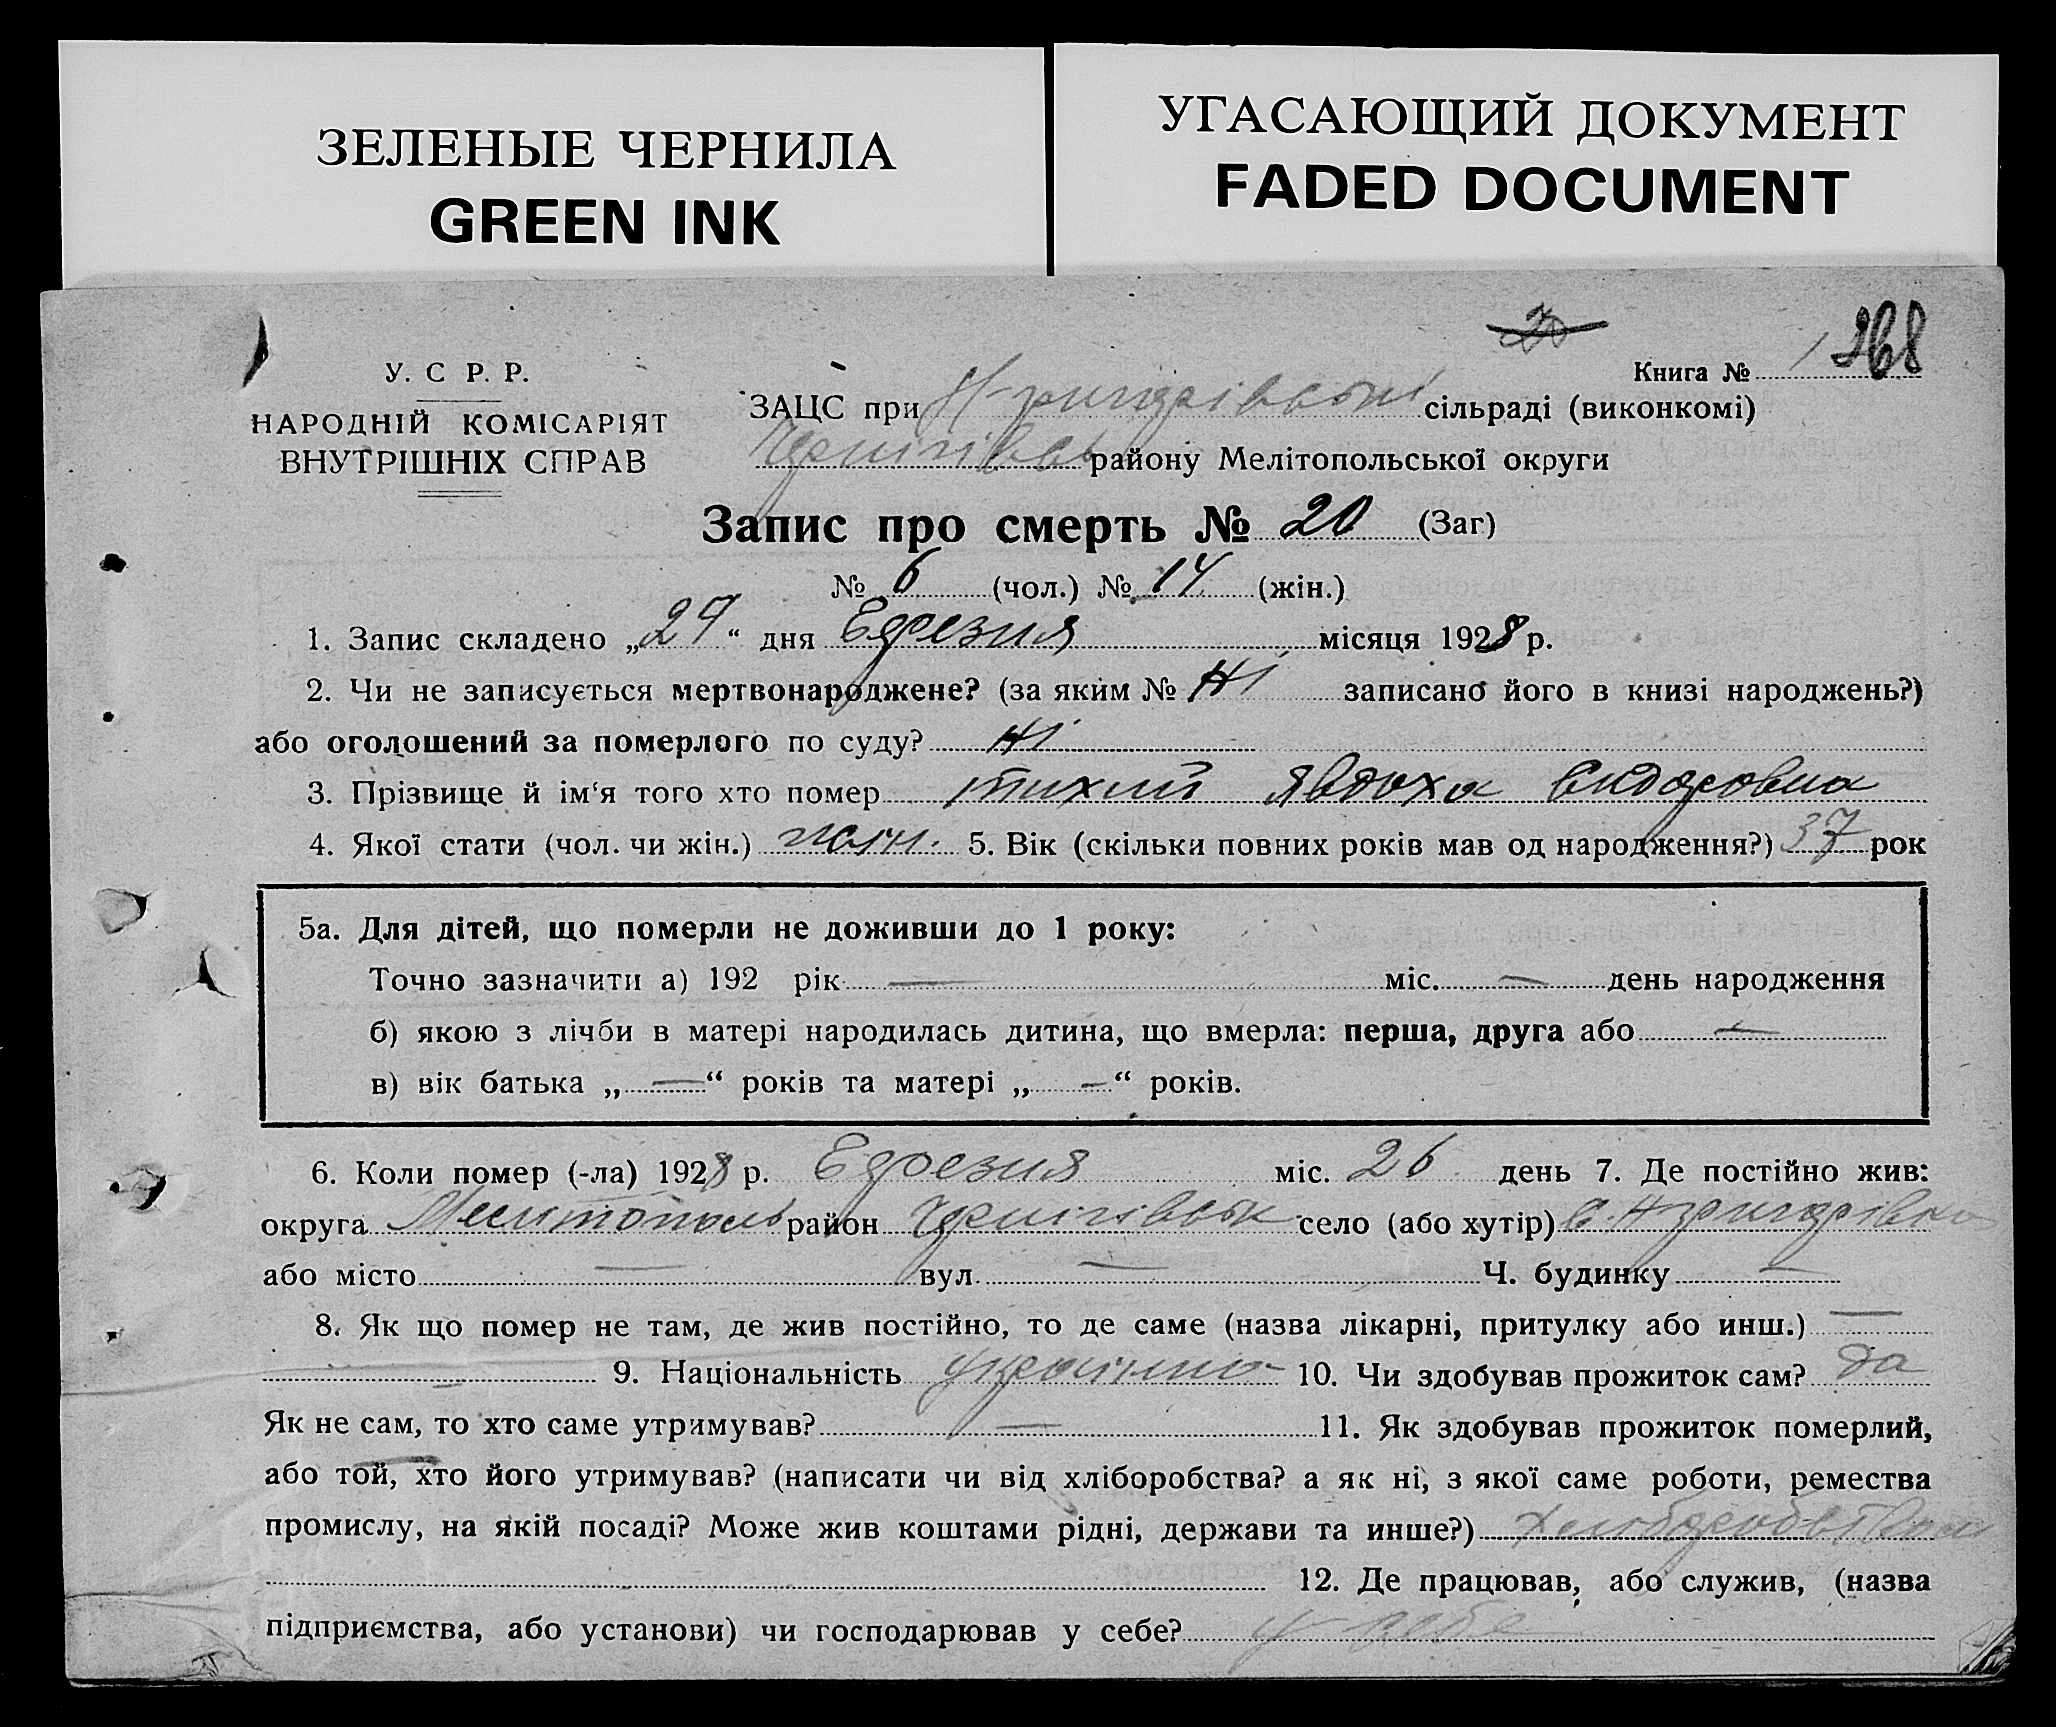 ЗЕЛЕНЫЕ ЧЕРНИЛА
GREEN INK
УГАСАЮЩИЙ ДОКУМЕНТ
FADED DOCUMENT
20
У. С Р. Р.
НАРОДНІЙ КОМІСАРІЯТ
ВНУТРІШНІХ СПРАВ
Книга № 1 268
ЗАЦС при сільраді (виконкомі)
району Мелітопольської округи
Запис про смерть № 20 (Заг)
№ 6 (чол.) № 14 (жін.)
1. Запис складено „ “ дня місяця 1928 р.
2. Чи не записується мертвонароджене? (за яким № Ні записано його в книзі народжень?)
або оголошений за померлого по суду? Ні
3. Прізвище й ім‘я того хто помер Тихий Явдоха
4. Якої стати (чол. чи жін.) жін. 5. Вік (скільки повних років мав од народження?) 37 рок
5а. Для дітей, що померли не доживши до 1 року:
Точно зазначити а) 192 рік — міс. — день народження
б) якою з лічби в матері народилась дитина, що вмерла: перша, друга або —
в) вік батька „ — “ років та матері „ — “ років.
6. Коли помер (-ла) 1928 р. міс. 26 день 7. Де постійно жив:
округа Мелитополь район село (або хутір)
або місто — вул. — Ч. будинку —
8. Як що помер не там, де жив постійно, то де саме (назва лікарні, притулку або инш.) —
— 9. Національність 10. Чи здобував прожиток сам? да
Як не сам, то хто саме утримував? — 11. Як здобував прожиток померлий,
або той, хто його утримував? (написати чи від хліборобства? а як ні, з якої саме роботи, ремества
промислу, на якій посаді? Може жив коштами рідні, держави та инше?)
12. Де працював, або служив, (назва
підприємства, або установи) чи господарював у себе? у себе